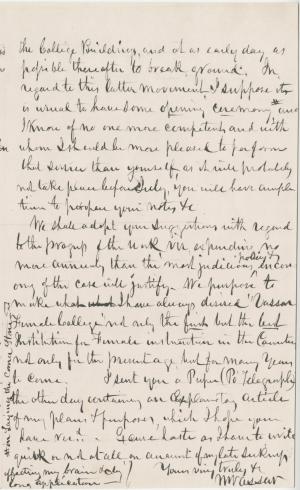 the College Building, and at as early day as
possible thereafter to break ground. In
regard to this latter movement, I suppose it
is usual to have some opening ceremony * and
I know of no one more competent, and with
whom I should be more pleased to perform
that service than yourself, as it will probably
not take place before July, you will have ample
time to prepare your notes &c
We shall adopt your suggestions with regard
to the progress of the work viz expending no
more annually than the most judicious policy &
of this case will justify. We purpose to
make what I have always desired "Vassar
Female College" not only the first but the best
Institution for Female instruction in the Country
not only for the present age, but for many Years
to come. I sent you a Paper (Po. Telegraph)
the other day containing an Article
of my plans & purposes, which I hope you
have recd. Excuse haste as I have to write
quick or not at all on account of my late
affecting my brain &c by
long application
Your very truly &c
M Vassar
* or laying the Corner Stone